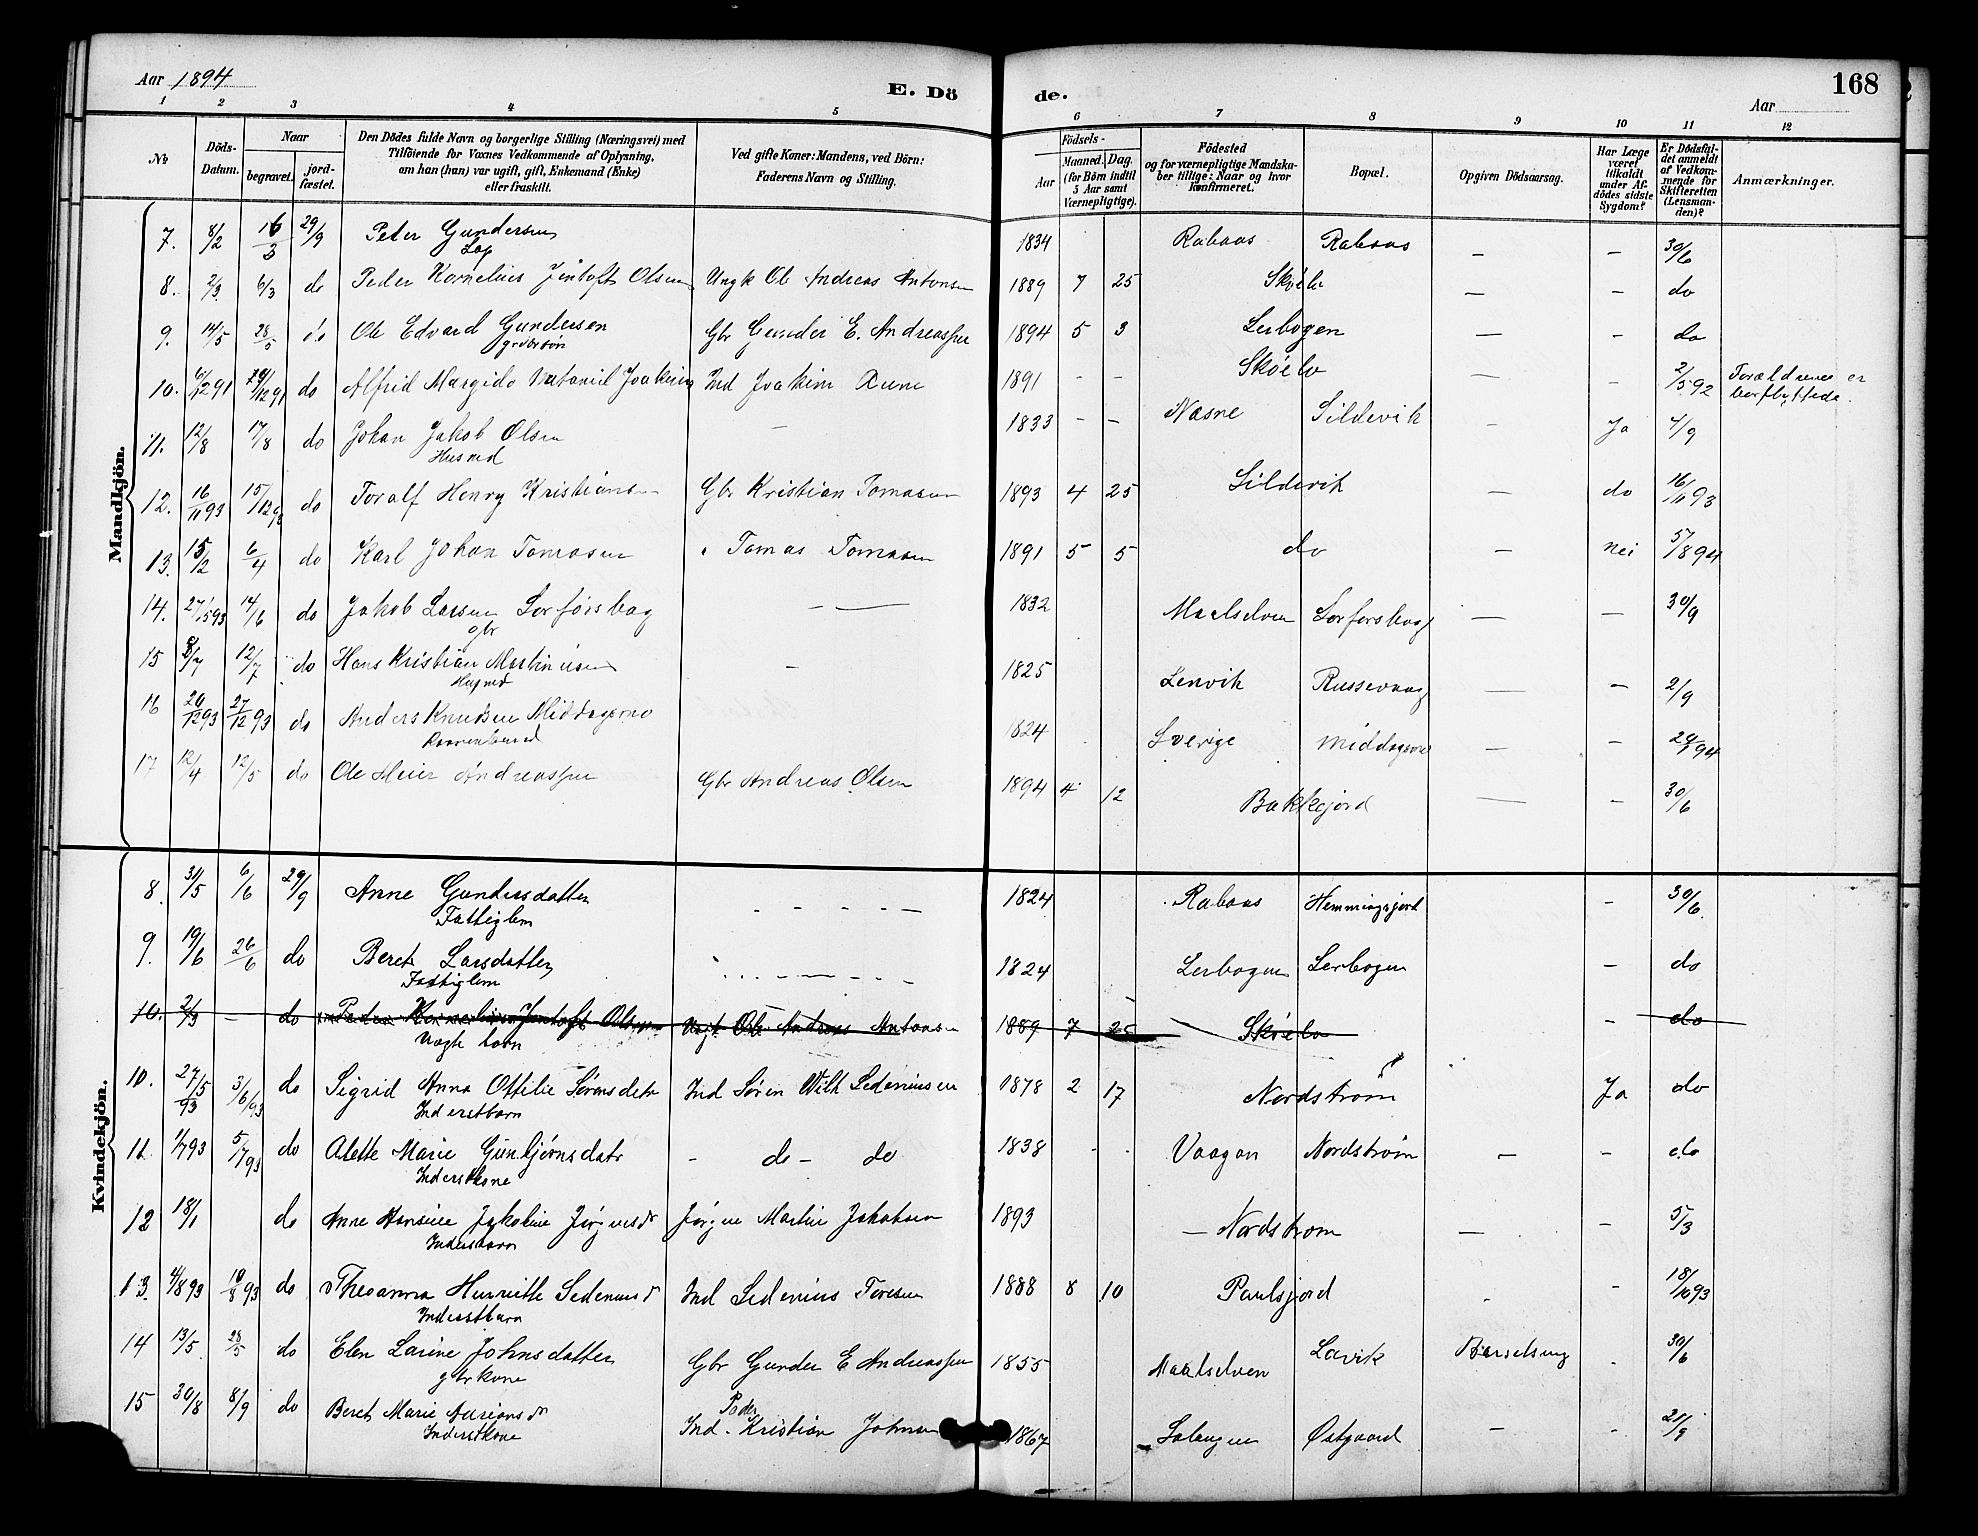 Aar 1894
E. Dö
de.
168
Aar
1 2 3 4 5 6 7 8 9 10 11 12
No
Döds-
Datum.
Naar
begravet.
jord-
fæstet.
Den Dödes fulde Navn og borgerlige Stilling (Næringsvei) med
Tilföiende for Voxnes Vedkommende af Oplysning,
om han (hun) var ugift, gift, Enkemand (Enke)
eller fraskilt.
Ved gifte Koner: Mandens, ved Börn:
Faderens Navn og Stilling.
Födsels-
Aar
Maaned. Dag.
(for Börn indtil
5 Aar samt
Værnepligtige).
Födested
og for værnepligtige Mandska-
ber tillige: Naar og hvor
konfirmeret.
Bopæl.
Opgiven Dödsaarsag.
Har Læge
været
tilkaldt
under Af-
dödes sidste
Sygdom?
Er Dödsfal-
det anmeldt
af Vedkom-
mende for
Skifteretten
(Lensman-
den)?
Anmærkninger.
Mandkjön.
7. 8/2 16/3 29/9 Peter Gundersen 1834 Rabaas Rabaas — — 30/6
Lap
8. 2/3 6/3 do Peder Kornelius Jentoft Olsen Ungk Ole Andreas Antonsen 1889 7 25 Skøelv — — do
9. 14/5 28/5 do Ole Edvard Gundersen Gbr Gunder E. Andreassen 1894 5 3 Lerbogen — — do
grdbrsøn
10. 6/12 91 do Alfrid Margido Nataniel Joakims Ind Joakim Rune 1891 - - Skøelv — - 2/5 92 Forældrene er
bortflyttede.
11. 12/8 17/8 do Johan Jakob Olsen — 1833 - - Næsne Sildevik - Ja 4/9
Husmd
12. 16/11 93 15/12 93 do Toralf Henry Kristiansen Gbr Kristian Tomasen 1893 4 25 Sildevik — do 16/11 93
13. 15/2 6/4 do Karl Johan Tomasen " Tomas Tomasen 1891 5 5 do — nei 5/8 94
14. 27/5 93 14/6 do Jakob Larsen Sørforsbog — 1832 Maalselven Sørforsbog — — 30/9
gbr
15 8/7 12/7 do Hans Kristian Martinusen - 1825 Lenvik Russevaag — - 2/9
Husmd
16 26/12 93 27/12 93 do Anders Knudsen Middagsnes 1824 Sverige Middagsnes — - 94
17 12/4 12/5 do Ole Meier Andreassen Gbr Andreas Olsen 1894 4 12 Bakkejord — - 30/6
Kvindekjön.
8. 31/5 6/6 29/9 Anne Gundersdatter - - - - — 1824 Rabaas Hemmingsjord - 30/6
Fattiglem
9. 19/6 26/6 do Beret Larsdatter 1824 Lerbogen Lerbogen - do
Fattiglem
10. 2/3 — do Peder Kornelius Jentoft Olsen Ungk Ole Andreas Antonsen 1889 7 25 Skøelv - do
Uægte barn
10. 27/5 93 3/6 93 do Sigrid Anna Ottilie Sørensdatr Ind Søren Wilh Sedeniusen 1878 2 17 Nordstrøm Ja do
Inderstbarn
11. 1/7 93 5/7 93 do Alette Marie Gunbjørnsdatr - do - do 1838 - - Vaagan Nordstrøm - - do
Inderstkone
12 18/1 do Anne Hansine Jakobine Jørgensdr Jørgen Martin Jakobsen 1893 — Nordstrøm — - 5/3
Inderstbarn
13. 4/8 93 10/8 93 do Theoanna Henriette Sedeniusd Ind Sedenius Toresen 1888 8 10 Paulsjord - - 18/10 93
Inderstbarn
14 13/5 28/5 do Elen Larine Johnsdatter Gbr Gunder E Andreassen 1855 Maalselven Lavik Barselseng - 30/6
gbrkone
15 30/8 8/9 do Beret Marie Ind. Peder Kristian Johnsen 1867 Salangen Østgaard — - 21/9
Inderstkone